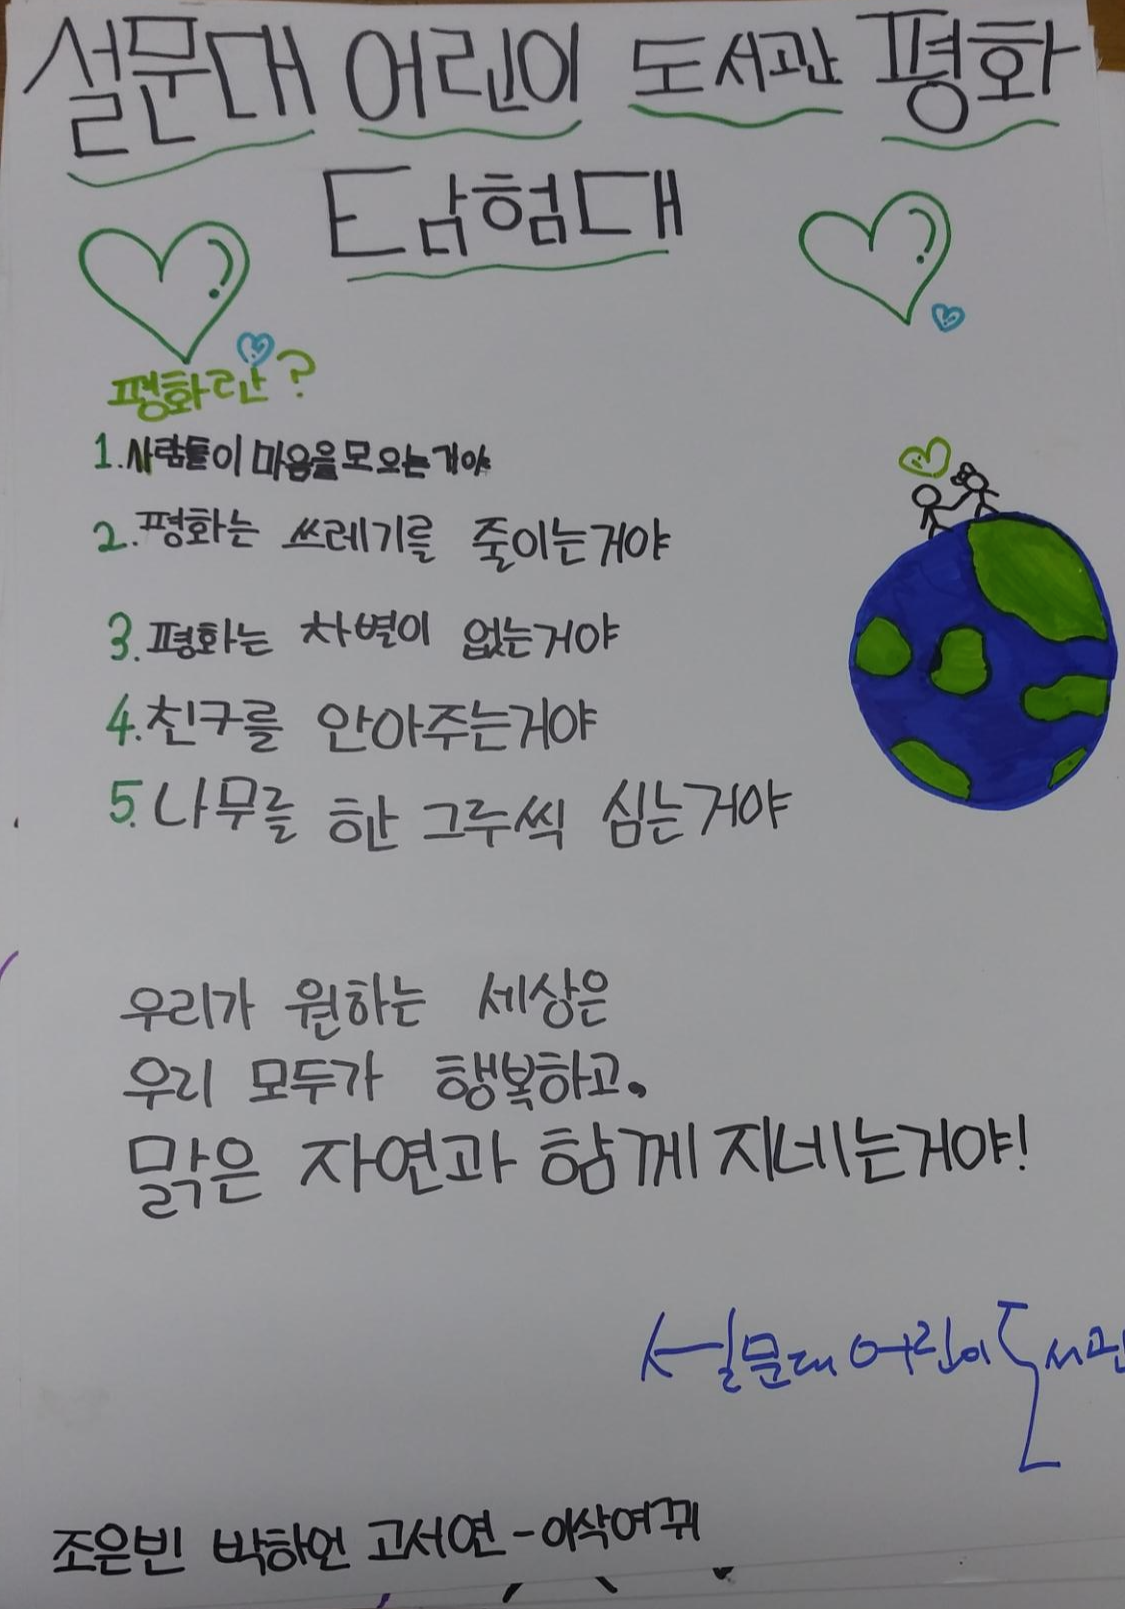 설문대 어린이 도서관 평화
탐험대
평화란?
1.사람들이 마음을모으는거야
2.평화는 쓰레기를 줄이는거야
3.평화는 차별이 없는거야
4.친구를 안아주는거야
5.나무를 한 그루씩 심는거야
우리가 원하는 세상은
우리 모두가 행복하고.
맑은 자연과 함께 지네는거야!
설문대 어린이 도서관
조은빈 박하언 고서연-이삭여뀌